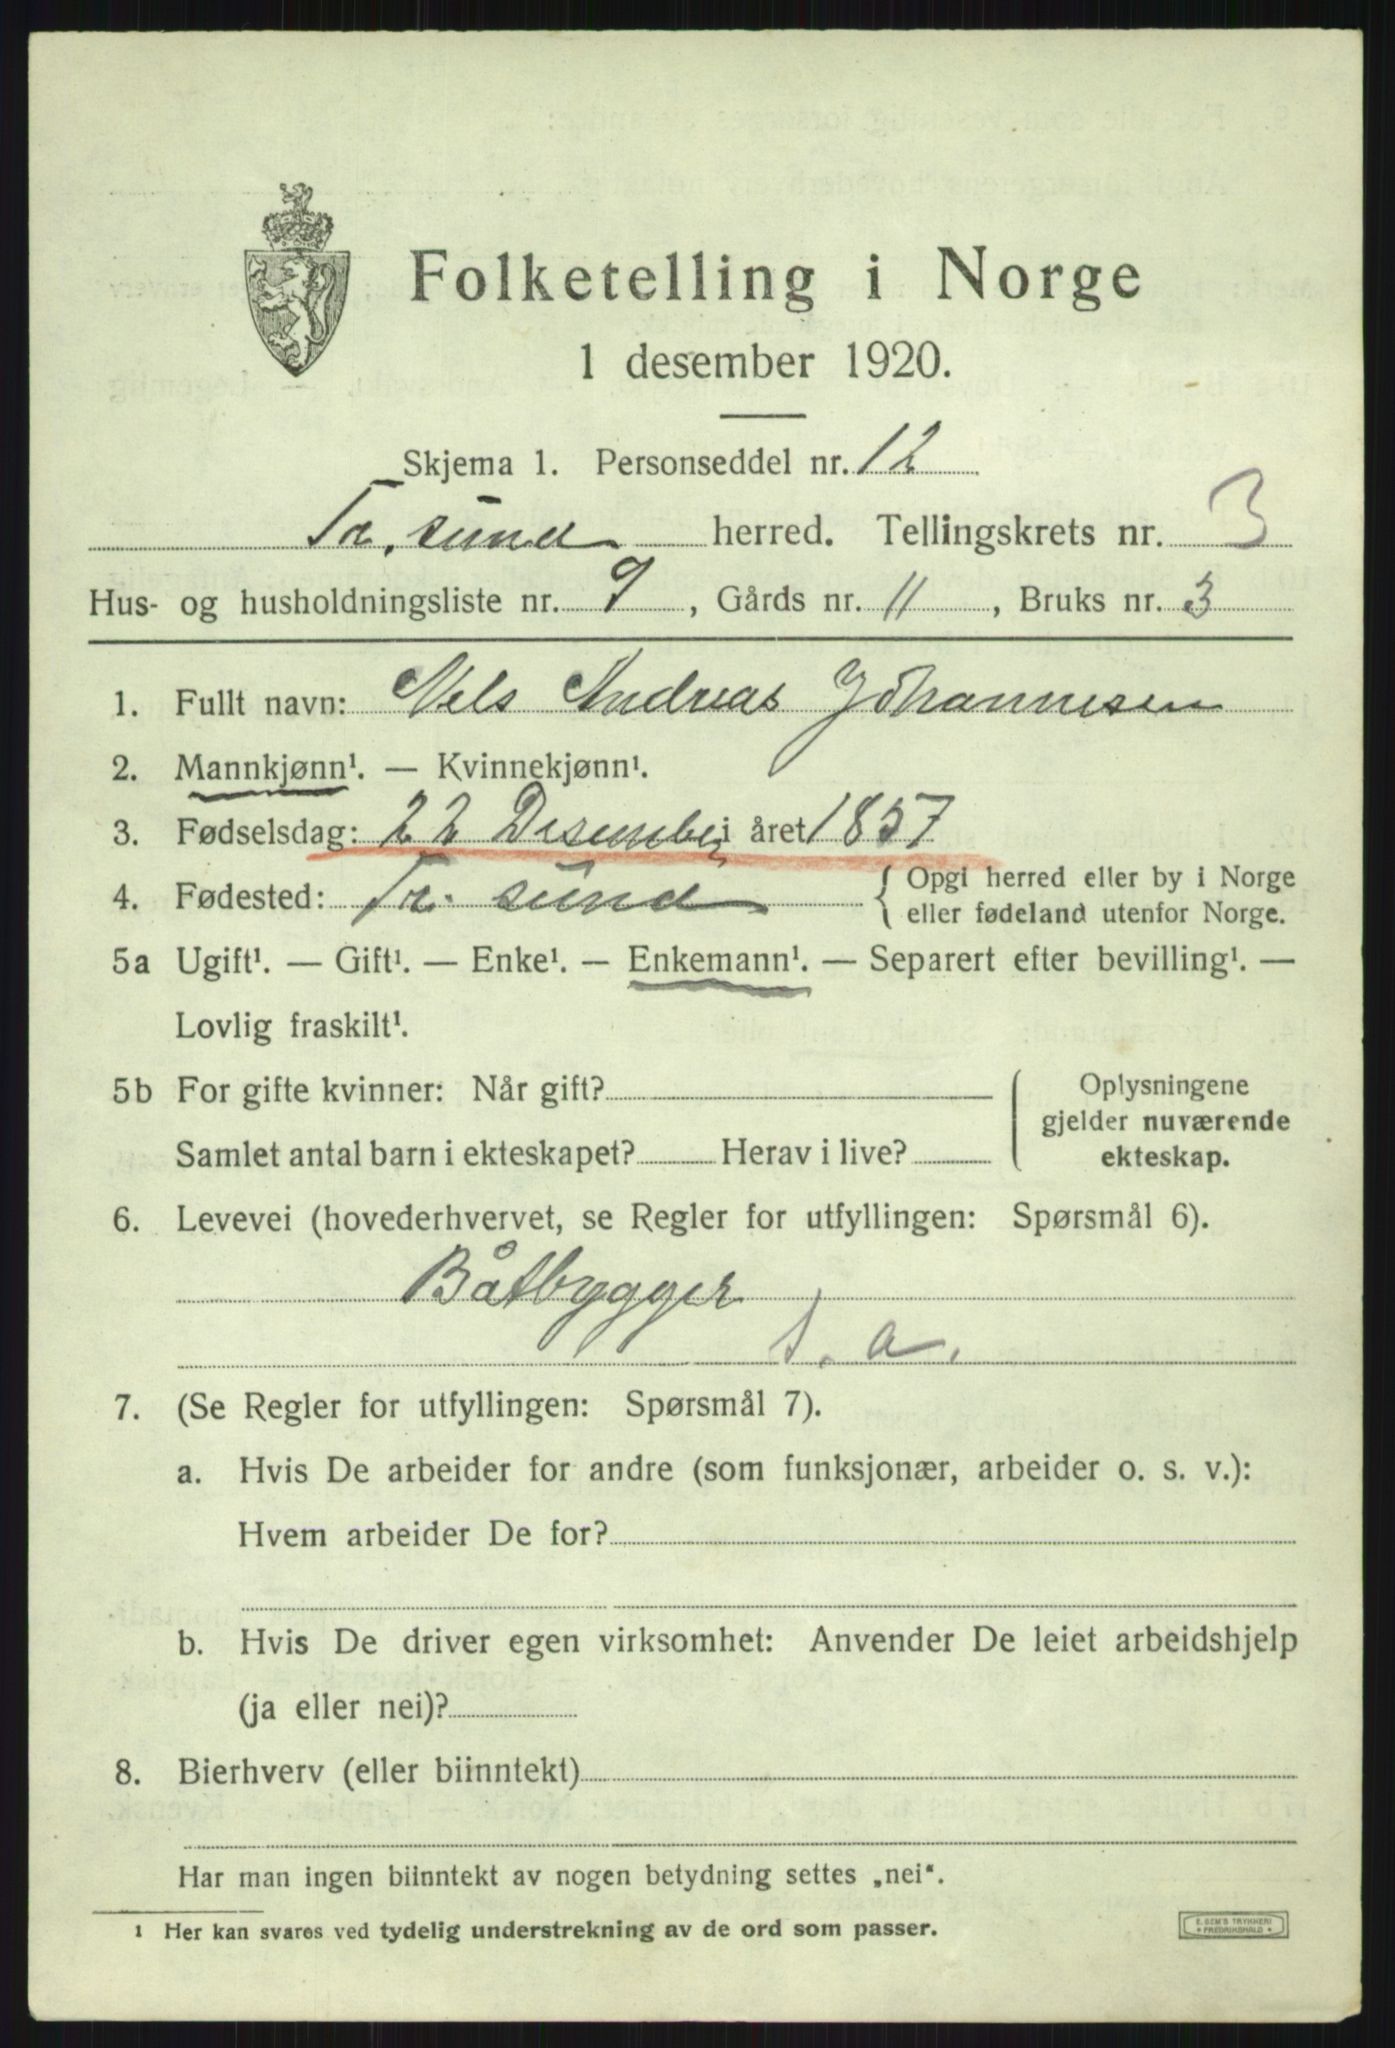 Folketelling i Norge
1 desember 1920.
Skjema 1. Personseddel nr. 12
Tr. sund herred. Tellingskrets nr. 3
Hus- og husholdningsliste nr. 9, Gårds nr. 11, Bruks nr. 3
1. Fullt navn: Nels Andreas Johannesen
2. Mannkjønn¹. — Kvinnekjønn¹.
3. Fødselsdag: 22 Desember i året 1857
4. Fødested: Tr. sund { Opgi herred eller by i Norge
eller fødeland utenfor Norge.
5a Ugift¹. — Gift¹. — Enke¹. — Enkemann¹. — Separert efter bevilling¹. —
Lovlig fraskilt¹.
5b For gifte kvinner: Når gift?
Samlet antal barn i ekteskapet? Herav i live?
Oplysningene
gjelder nuværende
ekteskap.
6. Levevei (hovederhvervet, se Regler for utfyllingen: Spørsmål 6).
Båtbygger
s. a.
7. (Se Regler for utfyllingen: Spørsmål 7).
a. Hvis De arbeider for andre (som funksjonær, arbeider o. s. v.):
Hvem arbeider De for?
b. Hvis De driver egen virksomhet: Anvender De leiet arbeidshjelp
(ja eller nei)?
8. Bierhverv (eller biinntekt)
Har man ingen biinntekt av nogen betydning settes „nei“.
¹ Her kan svares ved tydelig understrekning av de ord som passer.
E. SEM'S TRYKKERI
FREDRIKSHALD